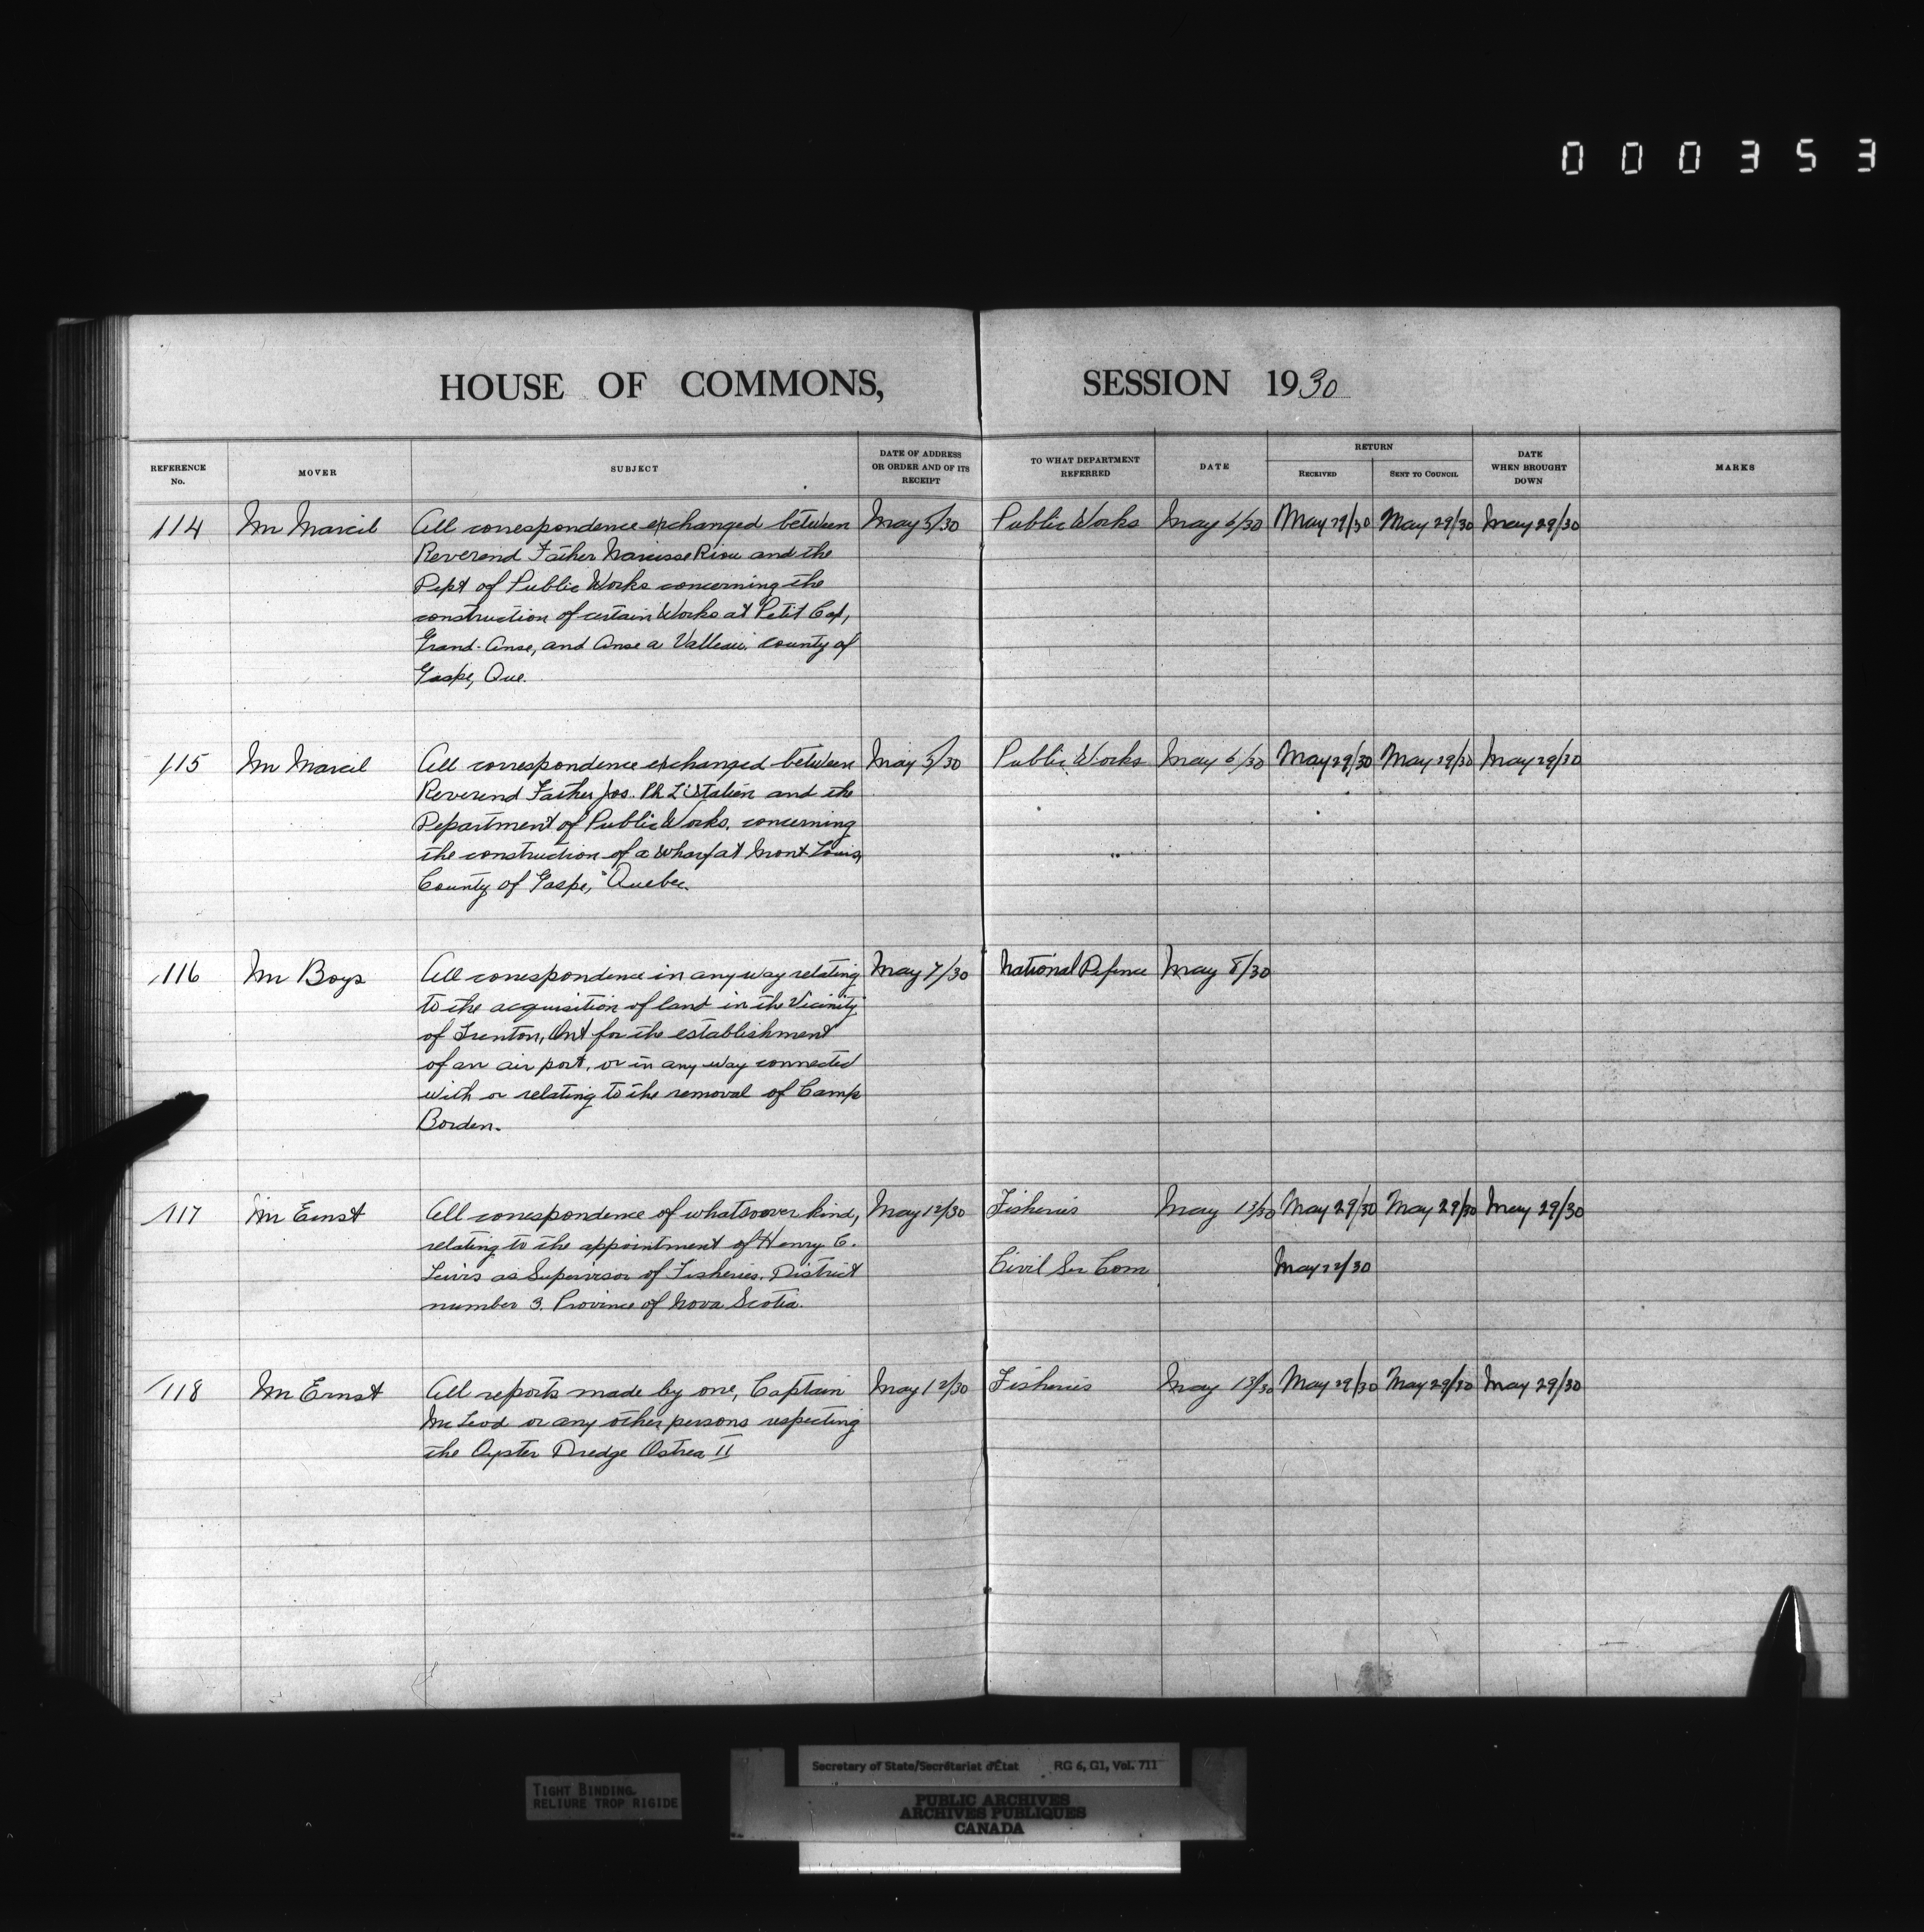 000353
HOUSE OF COMMONS, SESSION 1930
REFERENCE No. MOVER SUBJECT DATE OF ADDRESS OR ORDER AND OF ITS RECEIPT TO WHAT DEPARTMENT REFERRED DATE RETURN RECEIVED SENT TO COUNCIL DATE WHEN BROUGHT DOWN MARKS
114 Mr Marcil All correspondence exchanged between May 5/30 Public Works May 6/30 May 29/30 May 29/30 May 29/30
Reverend Father Narcisse Riou and the
Dept of Public Works concerning the
construction of certain Works at Petit Cap,
Grand-Anse, and Anse a Valleau, county of
Gaspe, Que.
115 Mr Marcil All correspondence exchanged between May 5/30 Public Works May 6/30 May 29/30 May 29/30 May 29/30
Reverend Father Jos. Ph. and the
Department of Public Works, concerning
the construction of a wharf at Mont Louis,
County of Gaspe, Quebec.
116 Mr Boys All correspondence in any way relating May 7/30 National Defence May 8/30
to the acquisition of land in the Vicinity
of Trenton, Ont for the establishment
of an air port, or in any way connected
with or relating to the removal of Camp
Borden.
117 Mr Ernst All correspondence of whatsoever kind, May 12/30 Fisheries May 13/30 May 29/30 May 29/30 May 29/30
relating to the appointment of Henry C.
Lewis as Supervisor of Fisheries, District Civil Ser Com May 22/30
number 3, Province of Nova Scotia.
118 Mr Ernst All reports made by one, Captain May 12/30 Fisheries May 13/30 May 29/30 May 29/30 May 29/30
McLeod or any other persons respecting
the Oyster Dredge Ostrea II
TIGHT BINDING
RELIURE TROP RIGIDE
Secretary of State/Secrétariat d'État RG 6, G1, Vol. 711
PUBLIC ARCHIVES
ARCHIVES PUBLIQUES
CANADA